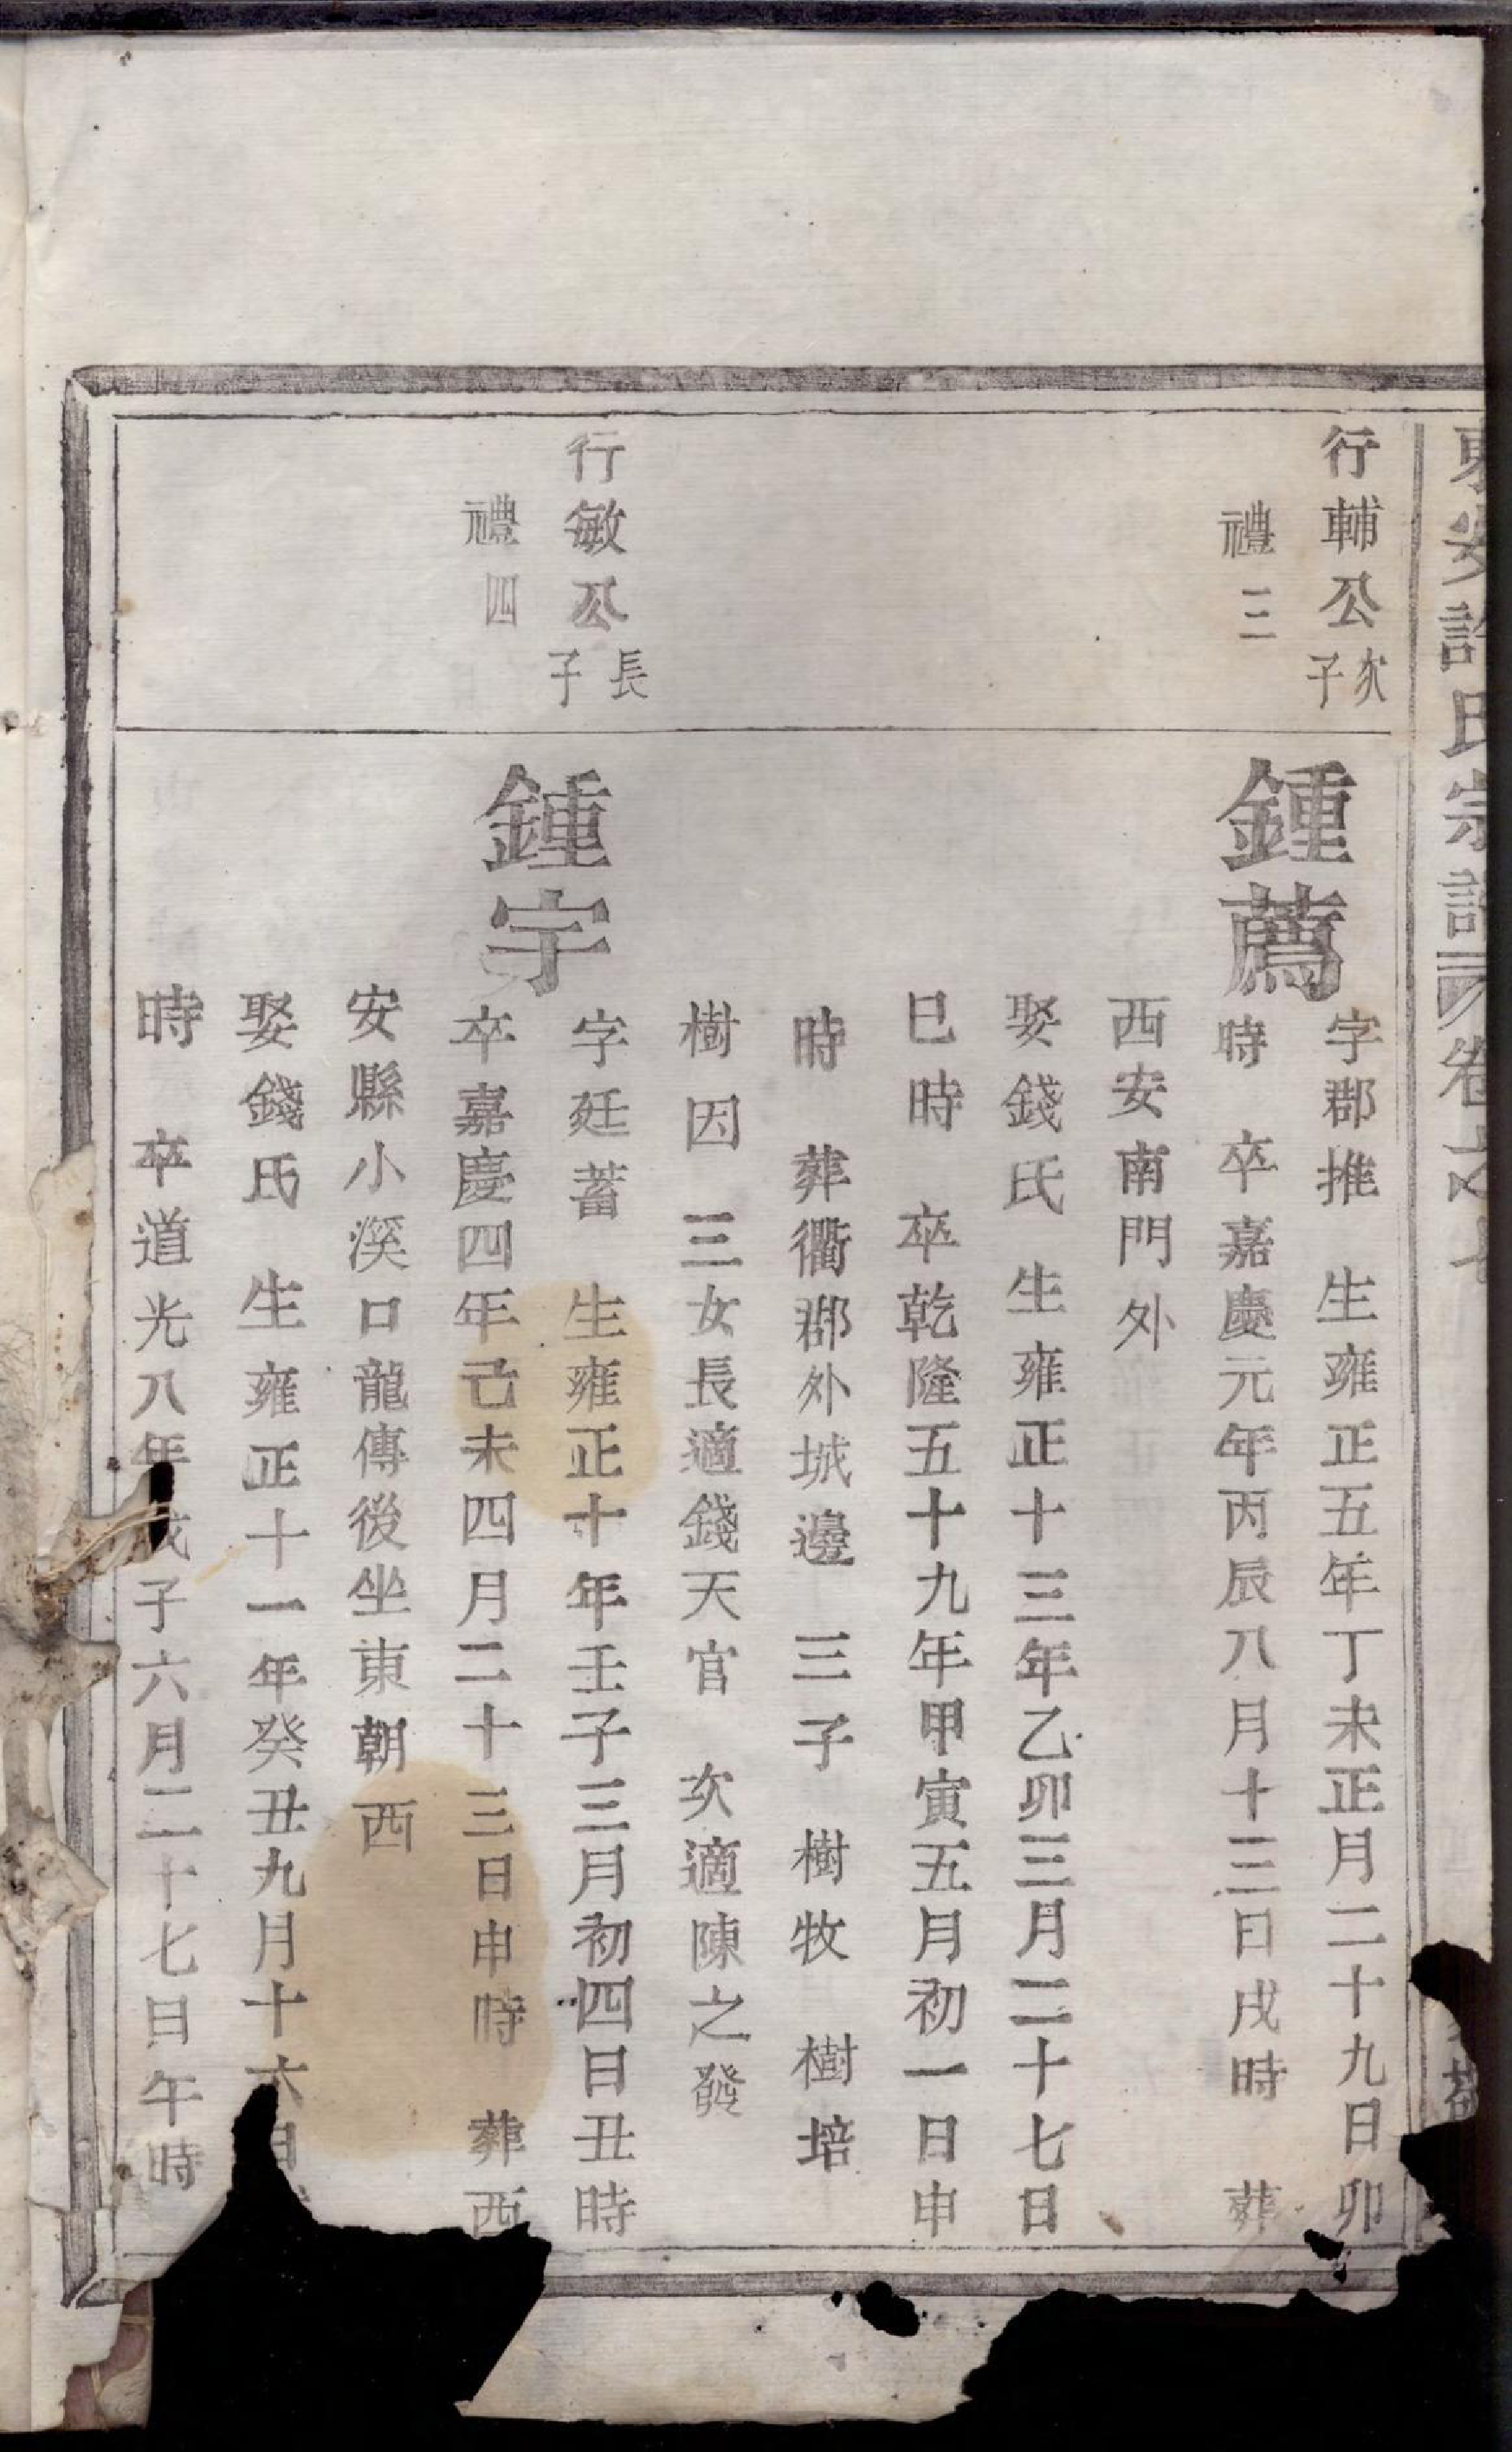 東安許氏宗譜 卷之七
行輔公次子
禮三
鍾薦
字郡推 生雍正五年丁未正月二十九日卯
時 卒嘉慶元年丙辰八月十三日戌時 葬
西安南門外
娶錢氏 生雍正十三年乙卯三月二十七日
巳時 卒乾隆五十九年甲寅五月初一日申
時 葬衢郡外城邊 三子 樹牧 樹培
樹因 三女長適錢天官 次適陳之發
行敏公長子
禮四
鍾宇
字廷蓄 生雍正十年壬子三月初四日丑時
卒嘉慶四年己未四月二十三日申時 葬西
安縣小溪口龍傳後坐東朝西
娶錢氏 生雍正十一年癸丑九月十六日
時 卒道光八年戊子六月二十七日午時